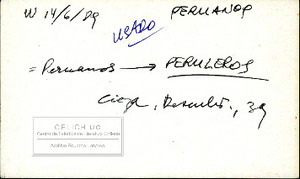 W 14/6/89 PERUANOS
USADO
= Peruanos → PERULEROS
Cieza, Descubr., 39
CELICH UC